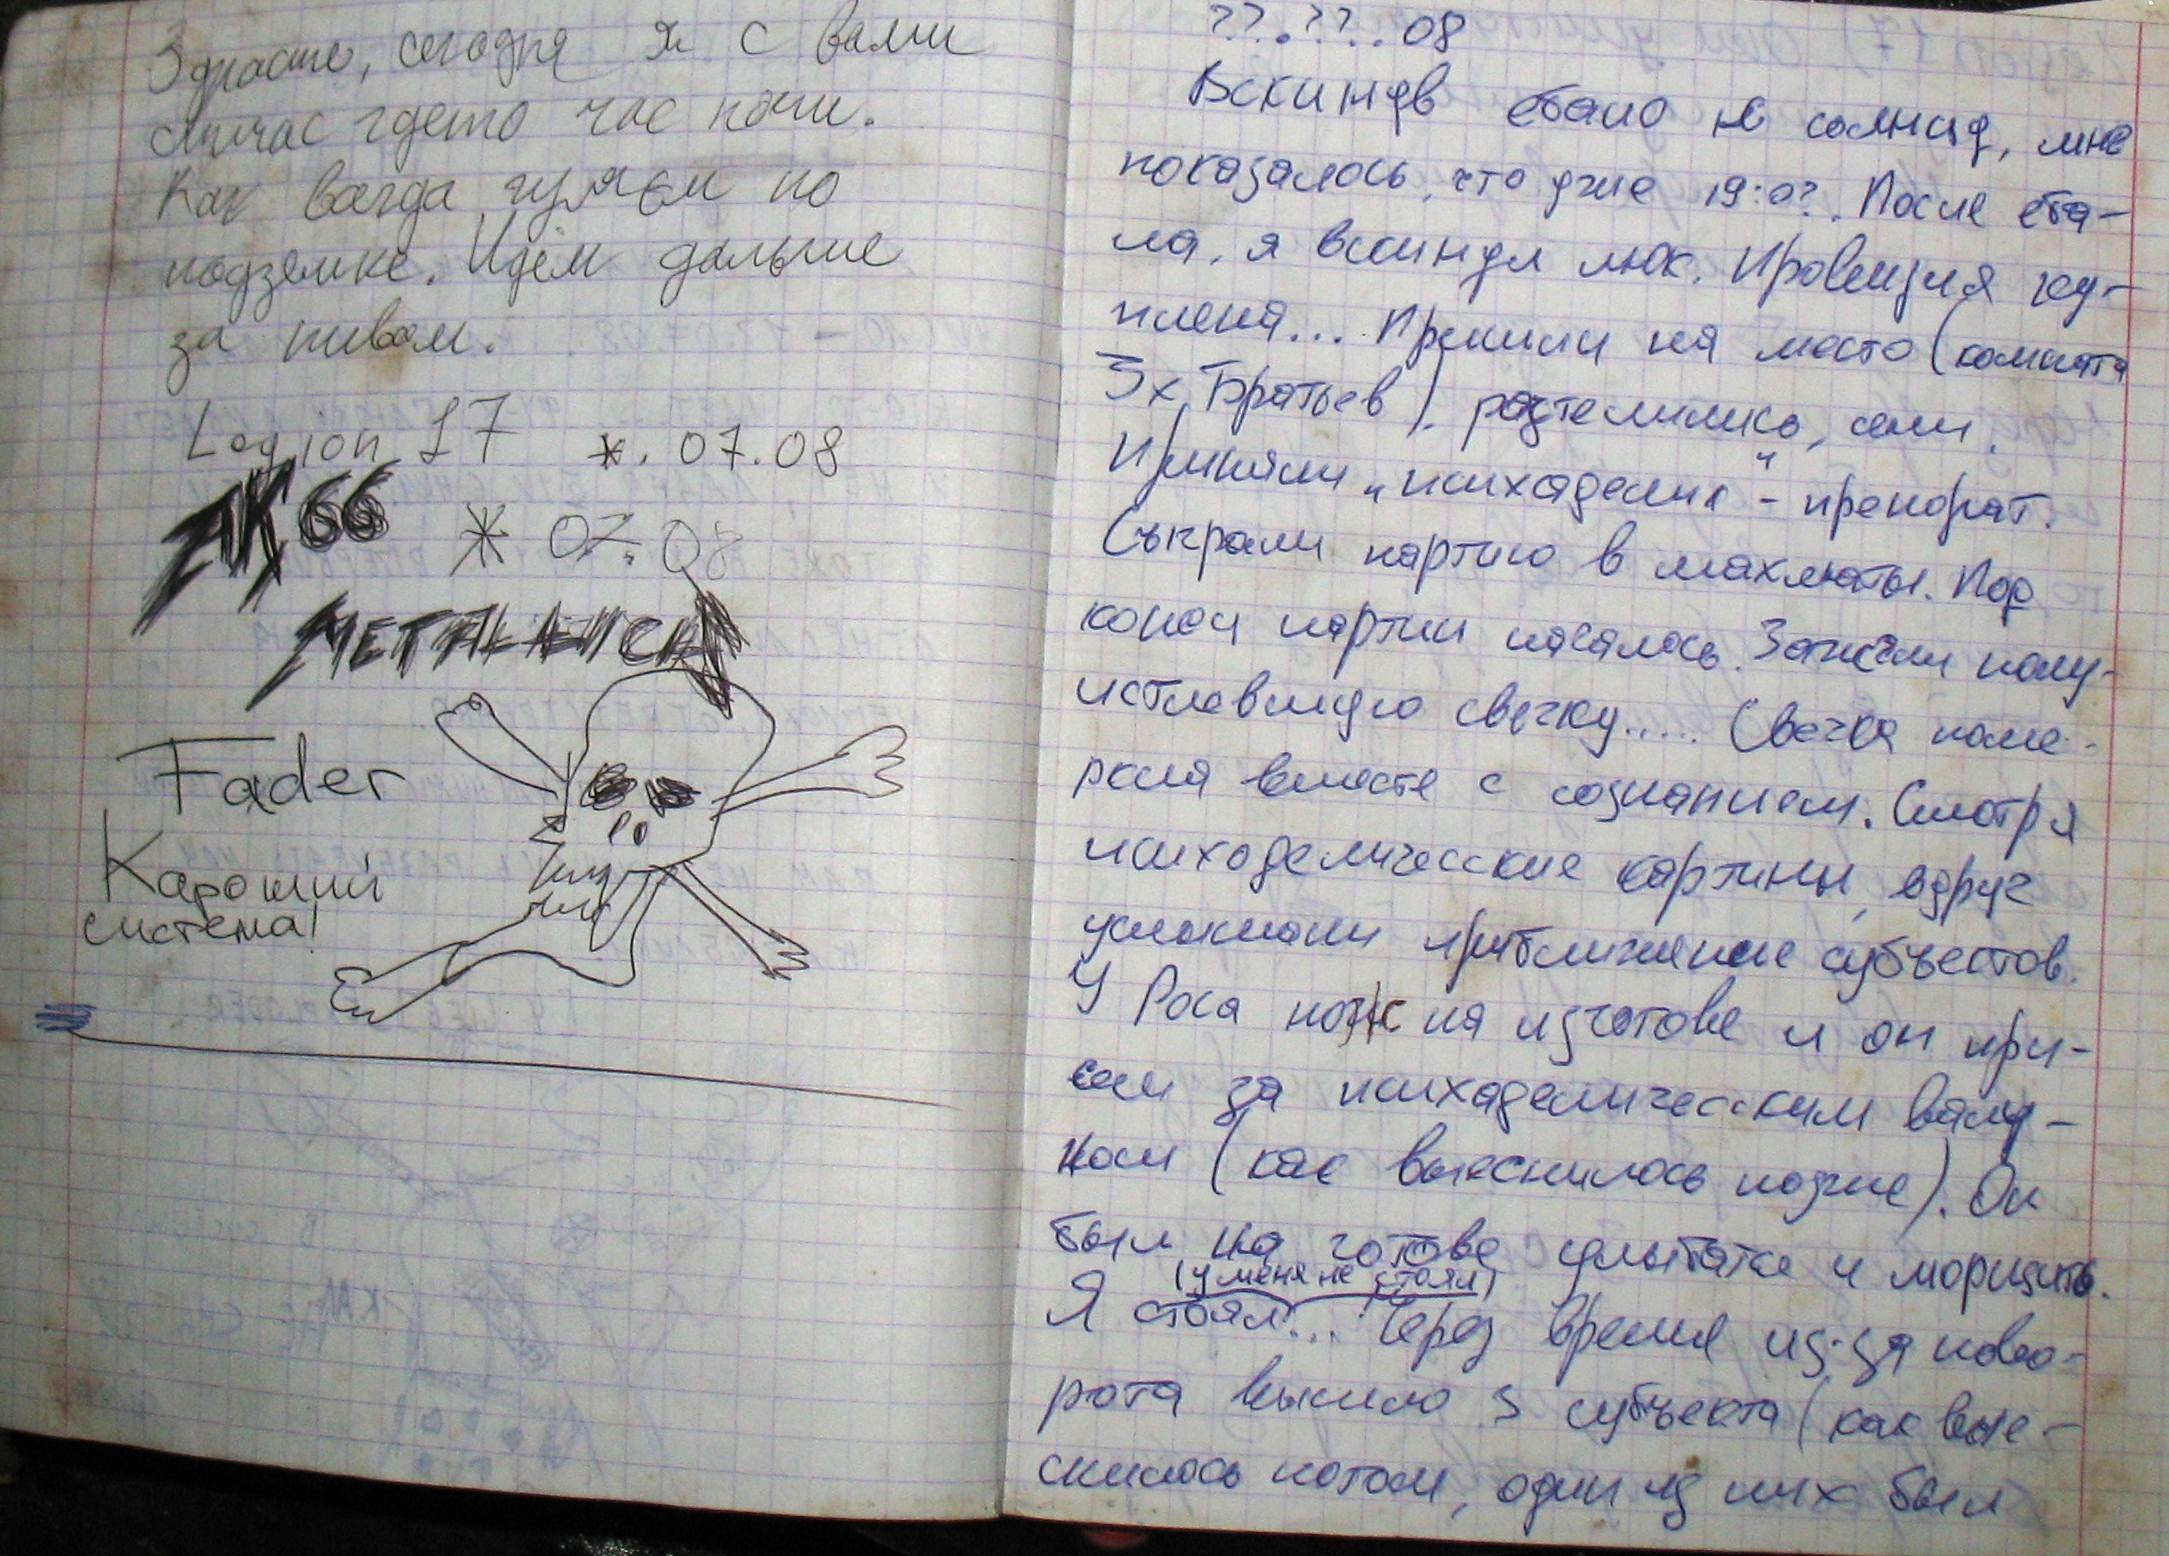 Здрасте, сегодня я с вами
сичас гдето час ночи.
Как всегда гуляем по
подземке. Идём дальше
за пивом.
Legion 17 *. 07.08
АК66 * 07.08
МЕТТАЛИСЫ
Fader
Кароший
система!
??.??.08
Вскинув ебало к солнцу, мне
показалось, что уже 19:0?. После еба-
ла, я вскинул люк. Провизия
Пришли на место (комната
3х Братьев), сели.
Приняли „психаделик“ - препорат.
Сыграли партию в махлюты. Под
конец партии началось. Зажгли полу-
истлевшую свечку..... Свечка поме-
ркла вместе с сознанием. Смотря
психоделичесские картины, вдруг
услышали приближение субъектов.
У Роса нож на изготове и он при-
сел за психаделичесским валу-
ном (как выеснилось позже). Он
был на готове улыбаться и морщить.
(у меня не стоял)
Я стоял... Через время из-за пово-
рота вышло 3 субъекта (как вые-
снилось потом, один из них был